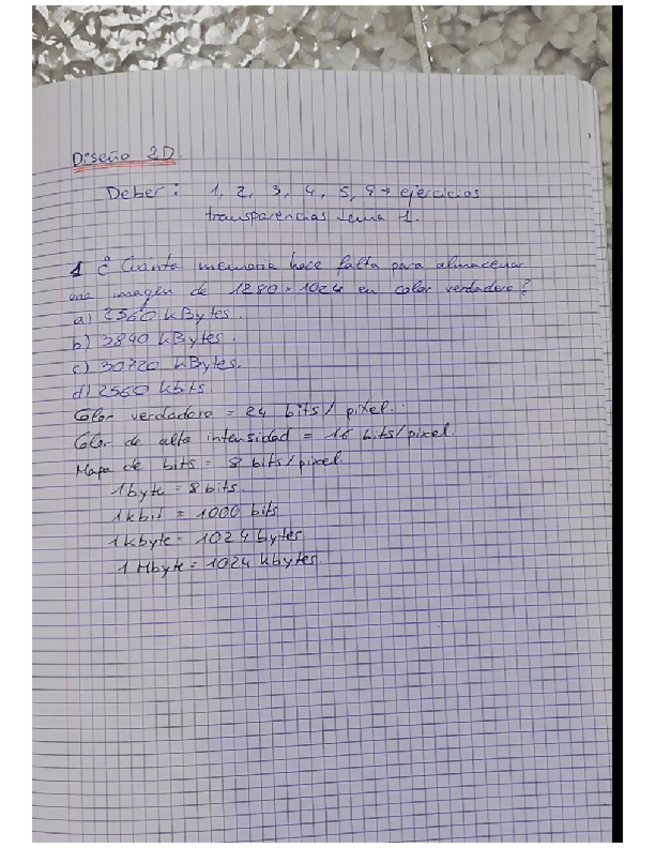 Diseño 2D.
Deber: 1, 2, 3, 4, 5, 9 → ejercicios
transparencias tema 1.
1 ¿Cuánta memoria hace falta para almacenar
una imagen de 1280 × 1024 en color verdadero?
a) 2560 kBytes.
b) 3840 kBytes.
c) 30720 kBytes.
d) 2560 kbits.
Color verdadero = 24 bits / pixel.
Color de alta intensidad = 16 bits/pixel.
Mapa de bits = 8 bits/pixel.
1 byte = 8 bits.
1 kbit = 1000 bits
1 kbyte = 1024 bytes
1 Mbyte = 1024 kbytes.